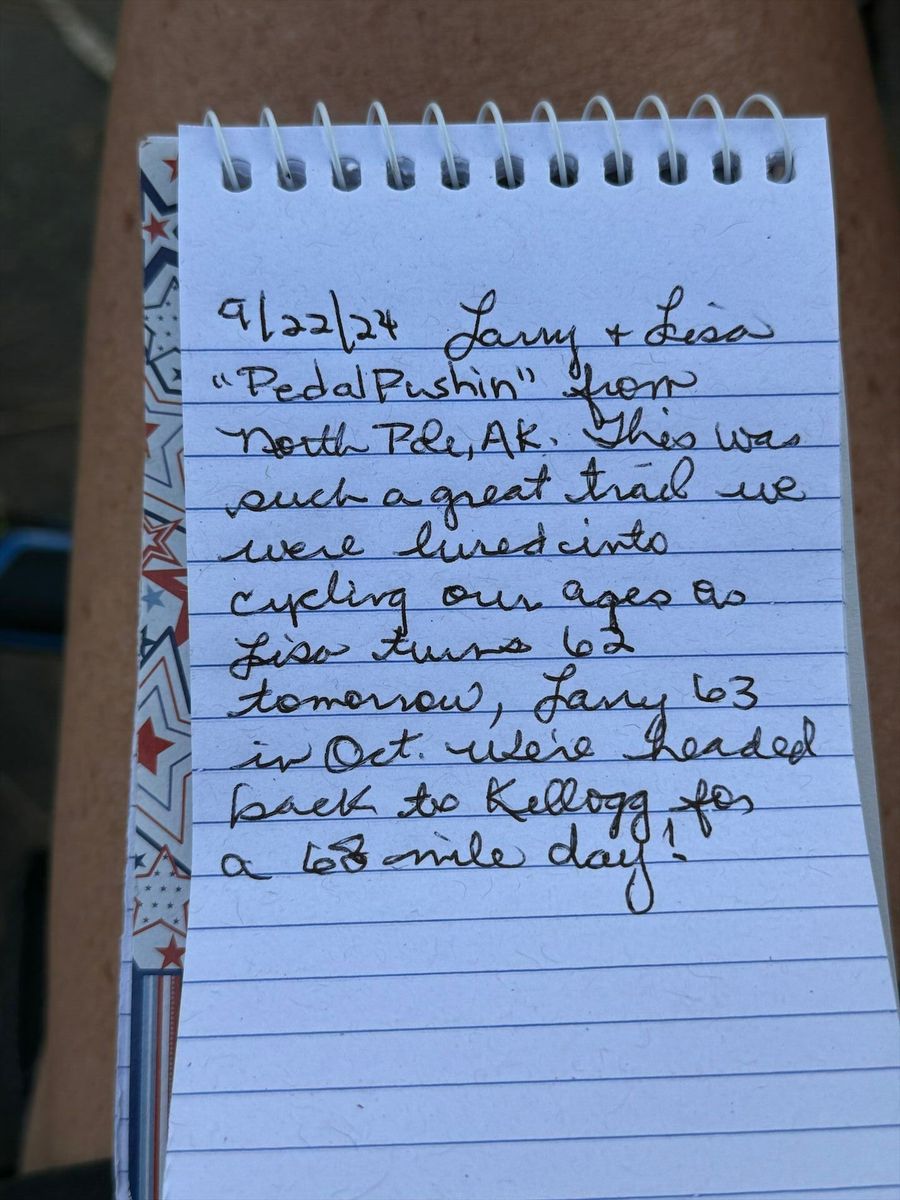 9/22/24 Larry + Lisa
"PedalPushin" from
North Pole, AK. This was
such a great trail we
were lured into
cycling our ages as
Lisa turns 62
tomorrow, Larry 63
in Oct. We're headed
back to Kellogg for
a 68 mile day!